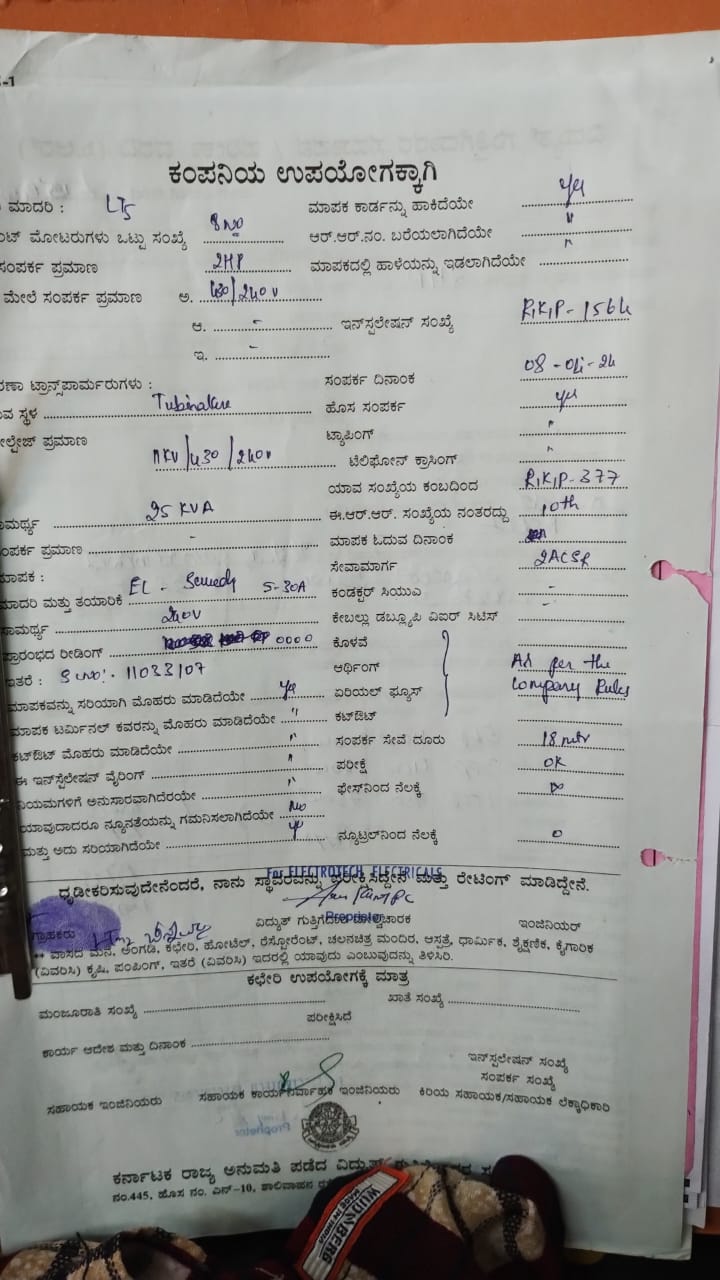 -1
ಕಂಪನಿಯ ಉಪಯೋಗಕ್ಕಾಗಿ
ಮಾದರಿ : LT5 ಮಾಪಕ ಕಾರ್ಡನ್ನು ಹಾಕಿದೆಯೇ yes
ಂಟ್ ಮೋಟರುಗಳು ಒಟ್ಟು ಸಂಖ್ಯೆ ಆರ್.ಆರ್.ನಂ. ಬರೆಯಲಾಗಿದೆಯೇ "
ಸಂಪರ್ಕ ಪ್ರಮಾಣ 2HP ಮಾಪಕದಲ್ಲಿ ಹಾಳೆಯನ್ನು ಇಡಲಾಗಿದೆಯೇ "
ಮೇಲೆ ಸಂಪರ್ಕ ಪ್ರಮಾಣ ಅ. 430/240V
ಆ. - ಇನ್‌ಸ್ಪಲೇಷನ್ ಸಂಖ್ಯೆ RKIP-1564
ಇ. -
ರಣಾ ಟ್ರಾನ್ಸ್‌ಪಾರ್ಮರುಗಳು : ಸಂಪರ್ಕ ದಿನಾಂಕ 08-04-24
ವ ಸ್ಥಳ Tubinakere ಹೊಸ ಸಂಪರ್ಕ yes
ೋಲ್ಟೇಜ್ ಪ್ರಮಾಣ 11KV/430/240V ಟ್ಯಾಪಿಂಗ್ "
ಟೆಲಿಫೋನ್ ಕ್ರಾಸಿಂಗ್ "
ಯಾವ ಸಂಖ್ಯೆಯ ಕಂಬದಿಂದ RKIP-377
ಾಮರ್ಥ್ಯ 25 KVA ಈ.ಆರ್.ಆರ್. ಸಂಖ್ಯೆಯ ನಂತರದ್ದು 10th
ಂಪರ್ಕ ಪ್ರಮಾಣ - ಮಾಪಕ ಓದುವ ದಿನಾಂಕ
ಮಾಪಕ : ಸೇವಾಮಾರ್ಗ 2ACSR
ಮಾದರಿ ಮತ್ತು ತಯಾರಿಕೆ EL - 5-30A ಕಂಡಕ್ಟರ್ ಸಿಯುಎ -
ಸಾಮರ್ಥ್ಯ 240V ಕೇಬಲ್ಲು ಡಬ್ಲ್ಯೂಪಿ ವಿಐರ್ ಸಿಟಿಸ್ -
ಪ್ರಾರಂಭದ ರೀಡಿಂಗ್ 0000 ಕೊಳವೆ
ಇತರೆ : S no: 11033107 ಆರ್ಥಿಂಗ್ As per the
ಮಾಪಕವನ್ನು ಸರಿಯಾಗಿ ಮೊಹರು ಮಾಡಿದೆಯೇ yes ಏರಿಯಲ್ ಫ್ಯೂಸ್ Company Rules
ಮಾಪಕ ಟರ್ಮಿನಲ್ ಕವರನ್ನು ಮೊಹರು ಮಾಡಿದೆಯೇ " ಕಟ್‌ಔಟ್
ಕಟ್‌ಔಟ್ ಮೊಹರು ಮಾಡಿದೆಯೇ " ಸಂಪರ್ಕ ಸೇವೆ ದೂರು 18 mtr
ಈ ಇನ್‌ಸ್ಪೆಲೇಷನ್ ವೈರಿಂಗ್ " ಪರೀಕ್ಷೆ OK
ನಿಯಮಗಳಿಗೆ ಅನುಸಾರವಾಗಿದೆರಯೇ " ಫೇಸ್‌ನಿಂದ ನೆಲಕ್ಕೆ ∞
ಯಾವುದಾದರೂ ನ್ಯೂನತೆಯನ್ನು ಗಮನಿಸಲಾಗಿದೆಯೇ No
ಮತ್ತು ಅದು ಸರಿಯಾಗಿದೆಯೇ yes ನ್ಯೂಟ್ರಲ್‌ನಿಂದ ನೆಲಕ್ಕೆ 0
For ELECTROTECH ELECTRICALS
ಧೃಡೀಕರಿಸುವುದೇನೆಂದರೆ, ನಾನು ಸ್ಥಾವರವನ್ನು ಪರೀಕ್ಷಿಸಿದ್ದೇನೆ ಮತ್ತು ರೇಟಿಂಗ್ ಮಾಡಿದ್ದೇನೆ.
Proprietor
ಗ್ರಾಹಕರು ವಿದ್ಯುತ್ ಗುತ್ತಿಗೆದಾರ ಮೇಲ್ವಿಚಾರಕ ಇಂಜಿನಿಯರ್
** ವಾಸದ ಮನೆ, ಅಂಗಡಿ, ಕಛೇರಿ, ಹೋಟೆಲ್, ರೆಸ್ಟೋರೆಂಟ್, ಚಲನಚಿತ್ರ ಮಂದಿರ, ಆಸ್ಪತ್ರೆ, ಧಾರ್ಮಿಕ, ಶೈಕ್ಷಣಿಕ, ಕೈಗಾರಿಕ
(ವಿವರಿಸಿ) ಕೃಷಿ, ಪಂಪಿಂಗ್, ಇತರೆ (ವಿವರಿಸಿ) ಇದರಲ್ಲಿ ಯಾವುದು ಎಂಬುವುದನ್ನು ತಿಳಿಸಿರಿ.
ಕಛೇರಿ ಉಪಯೋಗಕ್ಕೆ ಮಾತ್ರ
ಮಂಜೂರಾತಿ ಸಂಖ್ಯೆ ಖಾತೆ ಸಂಖ್ಯೆ
ಪರೀಕ್ಷಿಸಿದೆ
ಕಾರ್ಯ ಆದೇಶ ಮತ್ತು ದಿನಾಂಕ
ಇನ್‌ಸ್ಪಲೇಷನ್ ಸಂಖ್ಯೆ
ಸಂಪರ್ಕ ಸಂಖ್ಯೆ
ಸಹಾಯಕ ಇಂಜಿನಿಯರು ಸಹಾಯಕ ಕಾರ್ಯನಿರ್ವಾಹಕ ಇಂಜಿನಿಯರು ಕಿರಿಯ ಸಹಾಯಕ/ಸಹಾಯಕ ಲೆಕ್ಕಾಧಿಕಾರಿ
ಕರ್ನಾಟಕ ರಾಜ್ಯ ಅನುಮತಿ ಪಡೆದ ವಿದ್ಯುತ್
ನಂ.445, ಹೊಸ ನಂ. ಎನ್-10, ಶಾಲಿವಾಹನ
WUDNBERG
MADE IN INDIA